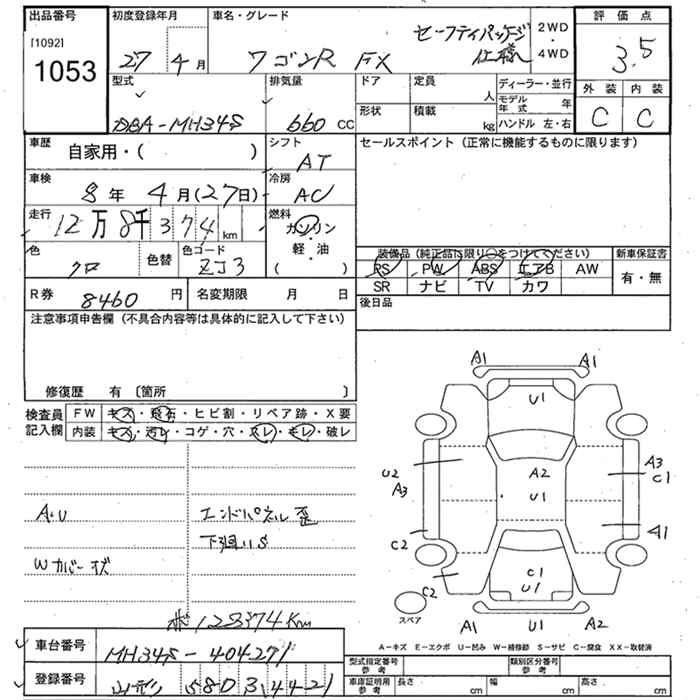 出品番号 初度登録年月 車名・グレード 評価点
[1092]
1053
27年4月 ワゴンR FX セーフティパッケージ仕様 2WD・4WD 3.5
型式 排気量 ドア 定員 人 ディーラー・並行 外装 内装
DBA-MH34S 660 CC 形状 積載 kg モデル年式 年 C C
ハンドル 左・右
車歴 自家用・( ) シフト AT セールスポイント(正常に機能するものに限ります)
車検 8年4月(27日) 冷房 AC
走行 12万8千374km 燃料 ガソリン・軽・油 ( )
色 クロ 色替 色コード ZJ3
装備品(純正品に限り○をつけてください) 新車保証書
PS PW ABS エアB AW 有・無
SR ナビ TV カワ
R券 8460円 名変期限 月 日 後日品
注意事項申告欄(不具合内容等は具体的に記入して下さい)
修復歴 有 〔箇所 〕
検査員記入欄 FW キズ・飛石・ヒビ割・リペア跡・X要
内装 キズ・汚レ・コゲ・穴・スレ・キレ・破レ
A・U エンドパネル歪
下廻りS
Wカバーキズ
128374Km
車台番号 MH34S-404271
登録番号 580 44-21
A1 A1
U1
U2 A2 A3
A3 U1 C1
C2 A1
C2 C1
U1
スペア A1 U1 A1
A-キズ E-エクボ U-凹み W-補修跡 S-サビ C-腐食 XX-取替済
型式指定番号 参考 類別区分番号 参考
車庫証明用 参考 長さ cm 幅 cm 高さ cm